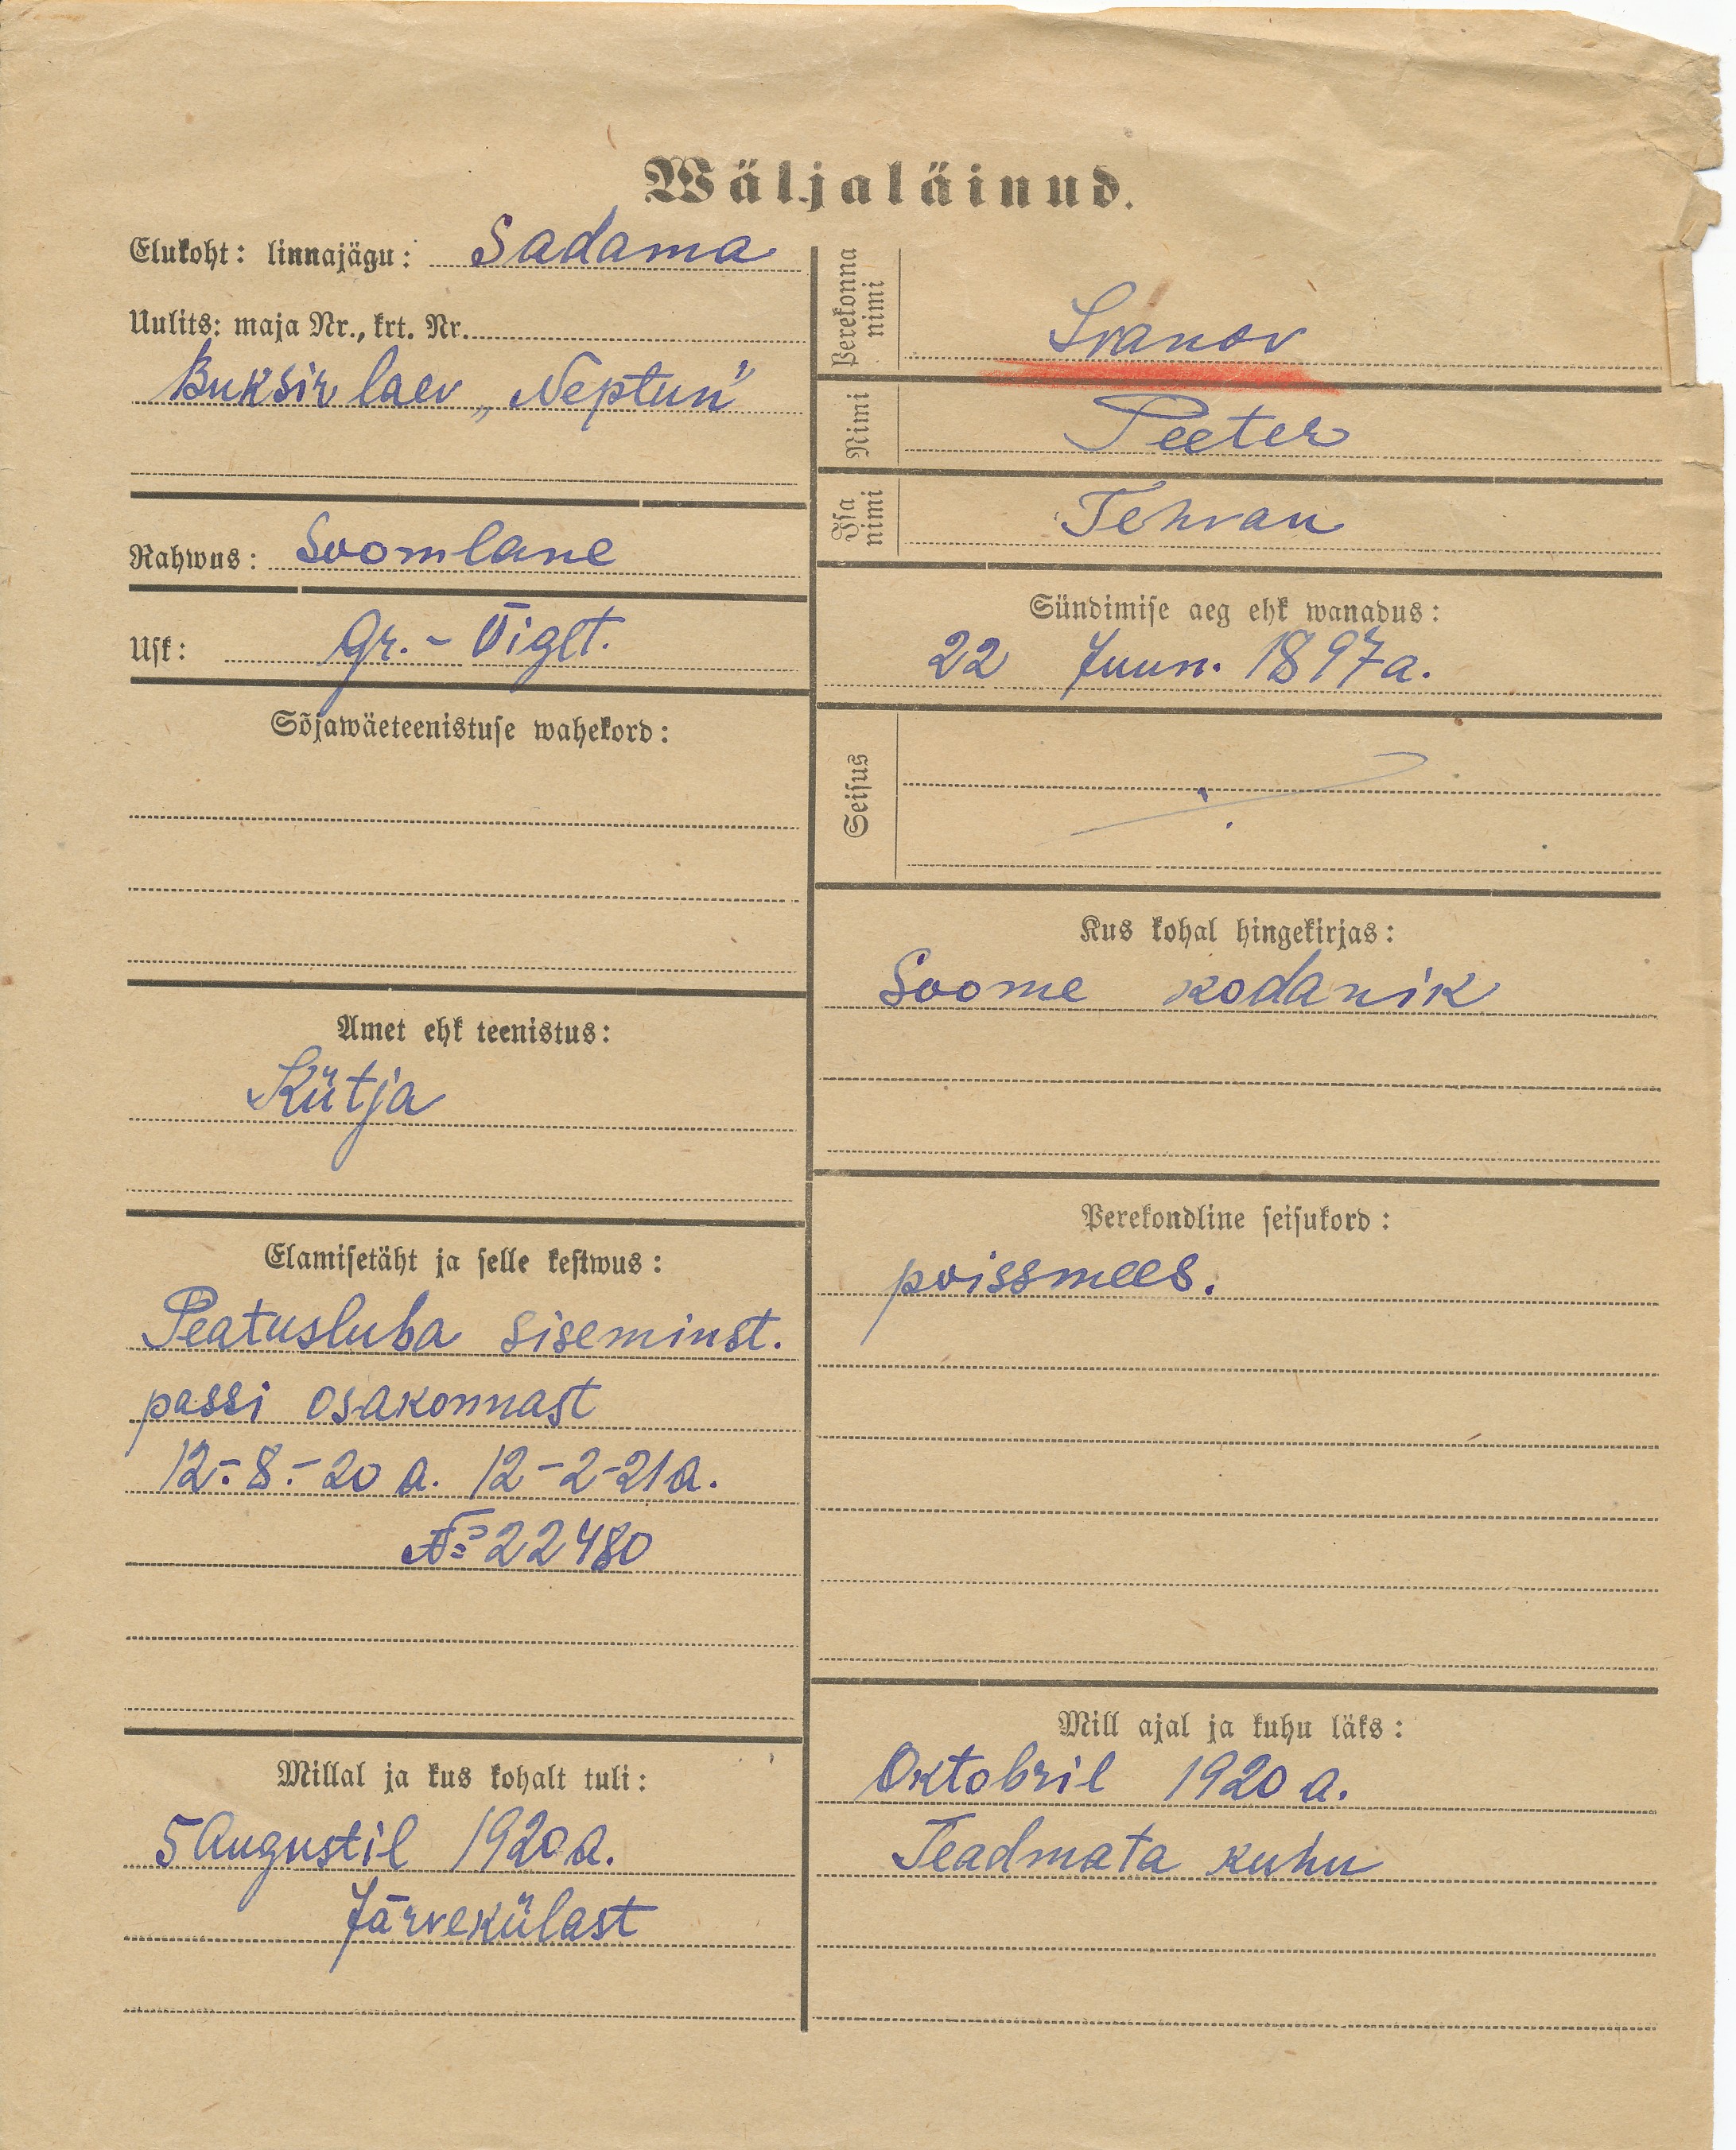 Wäljaläinud.
Elukoht: linnajägu: Sadama
Uulits: maja Nr., krt. Nr.
Buksir laev „Neptun"
Rahwus: Soomlane
Usk: Gr.-Õiglt.
Sõjawäeteenistuse wahekord:
Amet ehk teenistus:
Kütja
Elamisetäht ja selle kestwus:
Peatusluba siseminst.
passi osakonnast
12.-8.-20 a. 12-2-21 a.
№ 22480
Millal ja kus kohalt tuli:
5 Augustil 1920 a.
Järvekülast
Perekonna nimi
Ivanov
Nimi
Peeter
Isa nimi
Tehvan
Sündimise aeg ehk wanadus:
22 Juun. 1897 a.
Seisus
Kus kohal hingekirjas:
Soome kodanik
Perekondline seisukord:
poissmees.
Mill ajal ja kuhu läks:
Oktobril 1920 a.
Teadmata kuhu